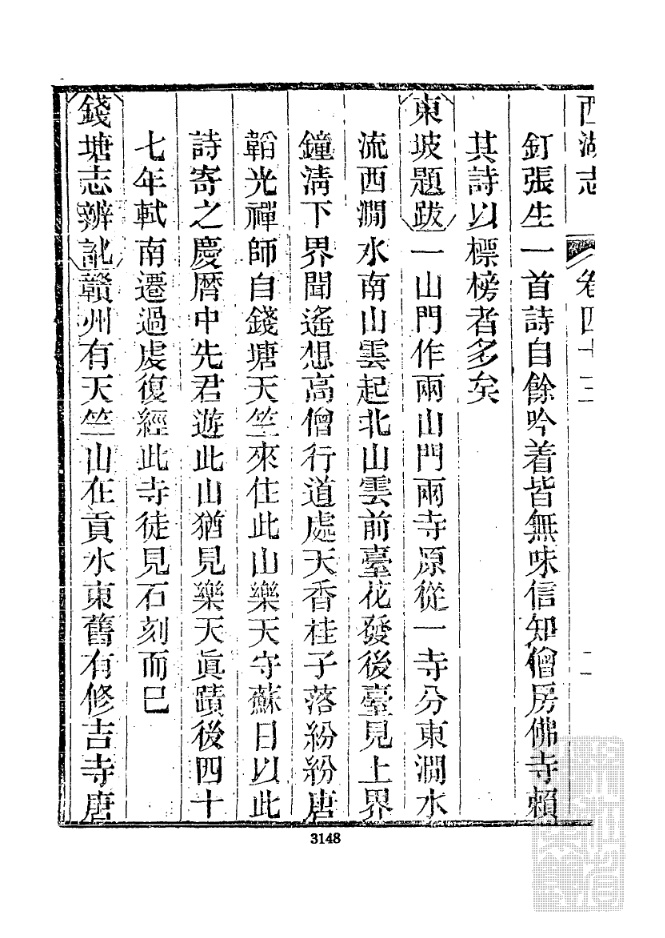 西湖志 卷四十三 二
釘張生一首詩自餘吟着皆無味信知僧房佛寺賴
其詩以標榜者多矣
東坡題跋一山門作兩山門兩寺原從一寺分東澗水
流西澗水南山雲起北山雲前臺花發後臺見上界
鐘淸下界聞遙想高僧行道處天香桂子落紛紛唐
韜光禪師自錢塘天竺來住此山樂天守蘇日以此
詩寄之慶曆中先君遊此山猶見樂天眞蹟後四十
七年軾南遷過虔復經此寺徒見石刻而已
錢塘志辨訛贛州有天竺山在貢水東舊有修吉寺唐
3148